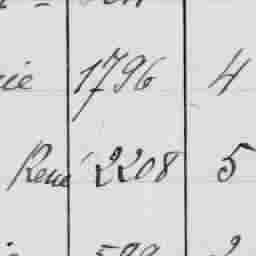 cie 1796 4
René 2208 5